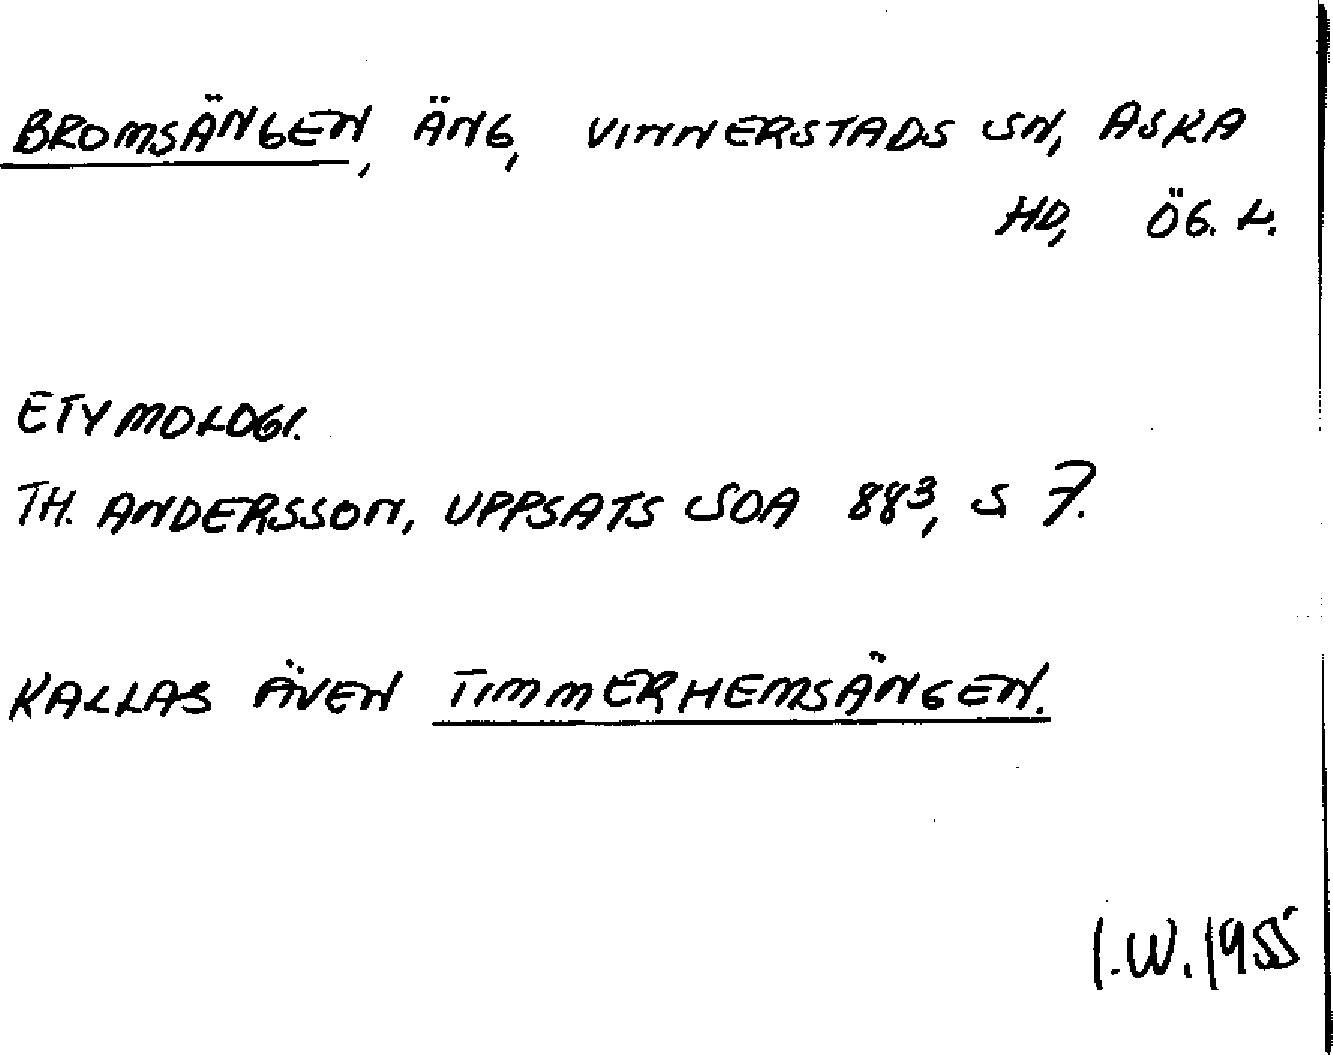 BROMSÄNGEN, ÄNG, VINNERSTADS SN, ASKA
HD, ÖG. L.
ETYMOLOGI.
TH. ANDERSSON, UPPSATS SOA 883, S 7.
KALLAS ÄVEN TIMMERHEMSÄNGEN.
I.W. 1955